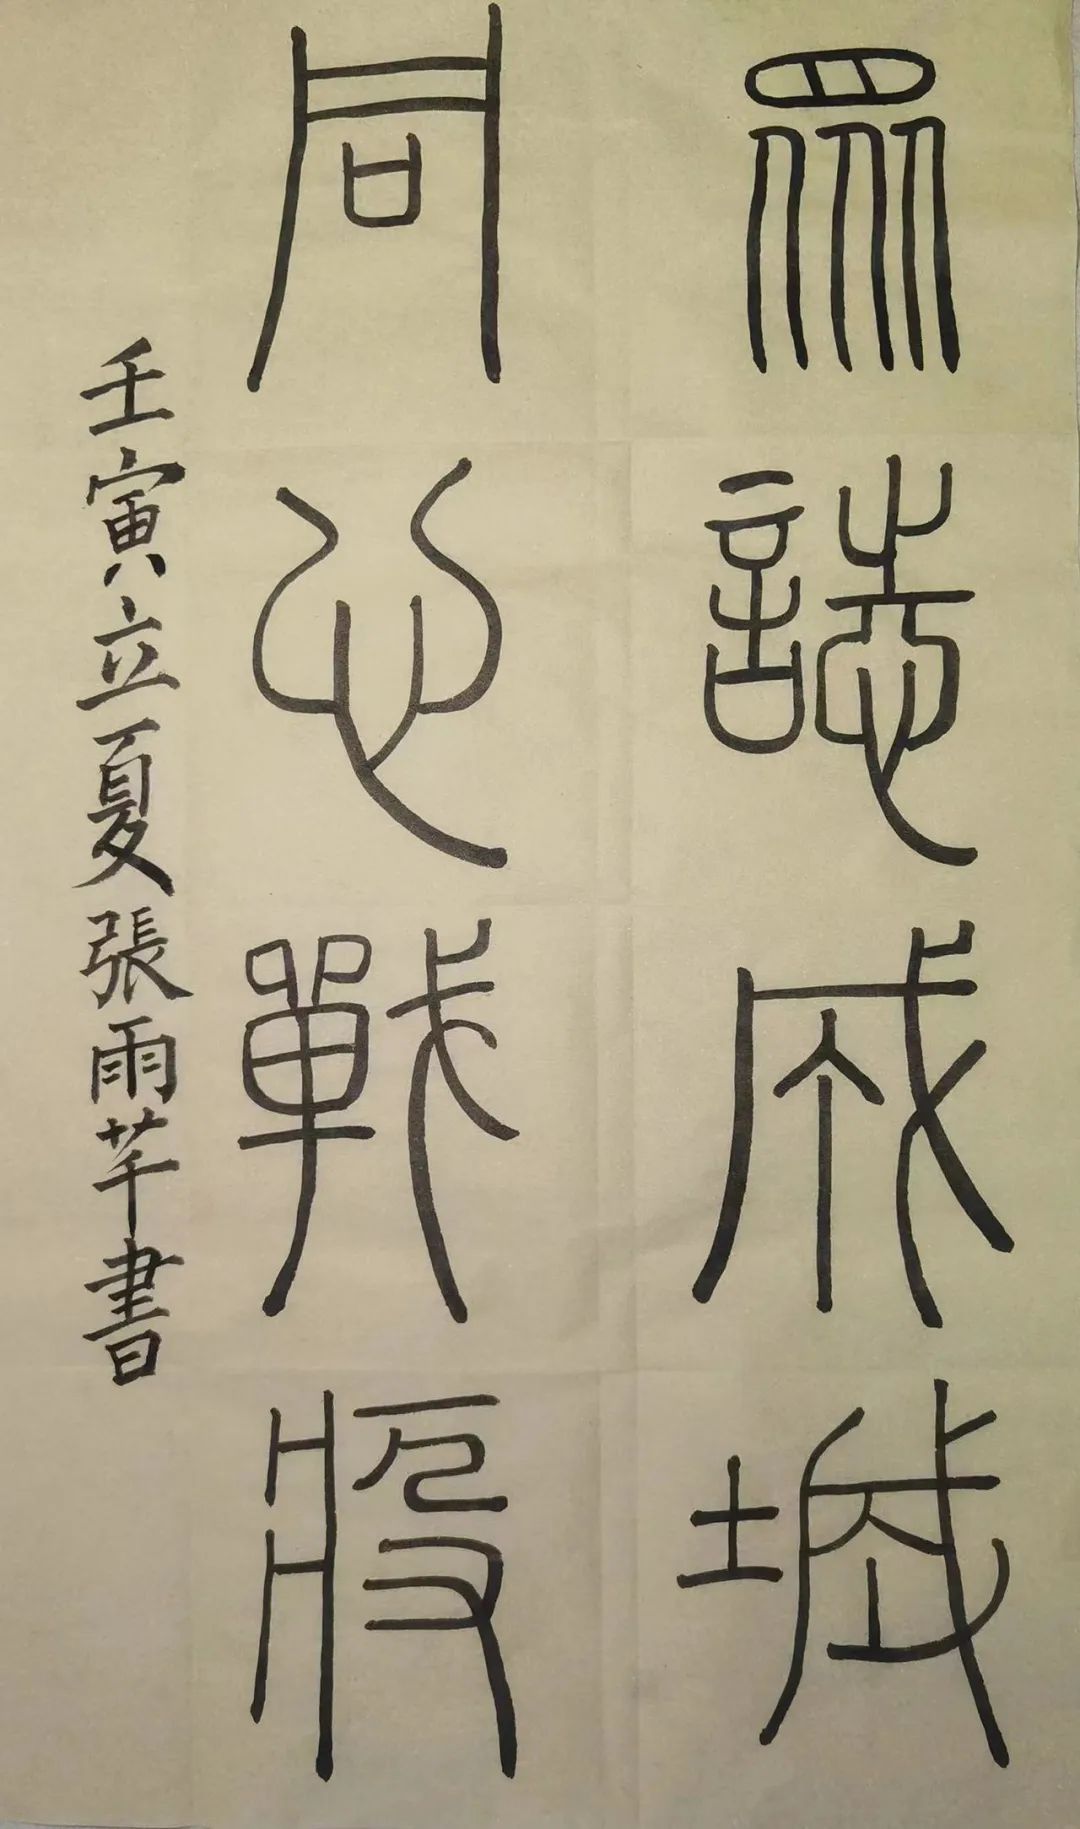 眾誌成城
同心戰疫
壬寅立夏張雨芊書